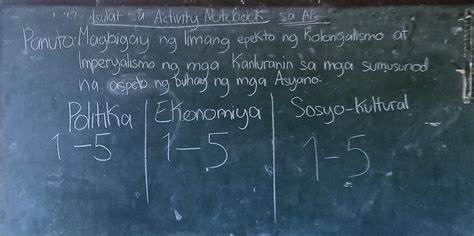 Isulat sa Activity Notebook sa AP
Panuto: Magbigay ng limang epekto ng Kolonyalismo at
Imperyalismo ng mga Kanluranin sa mga sumusunod
na aspeto ng buhay ng mga Asyano.
Politika Ekonomiya Sosyo-Kultural
1-5 1-5 1-5